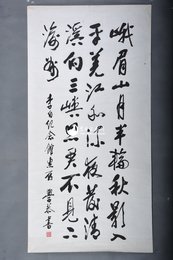 峨眉山月半輪秋影入
平羌江水流夜發清
溪向三峽思君不見下
渝州
李白纪念館惠存